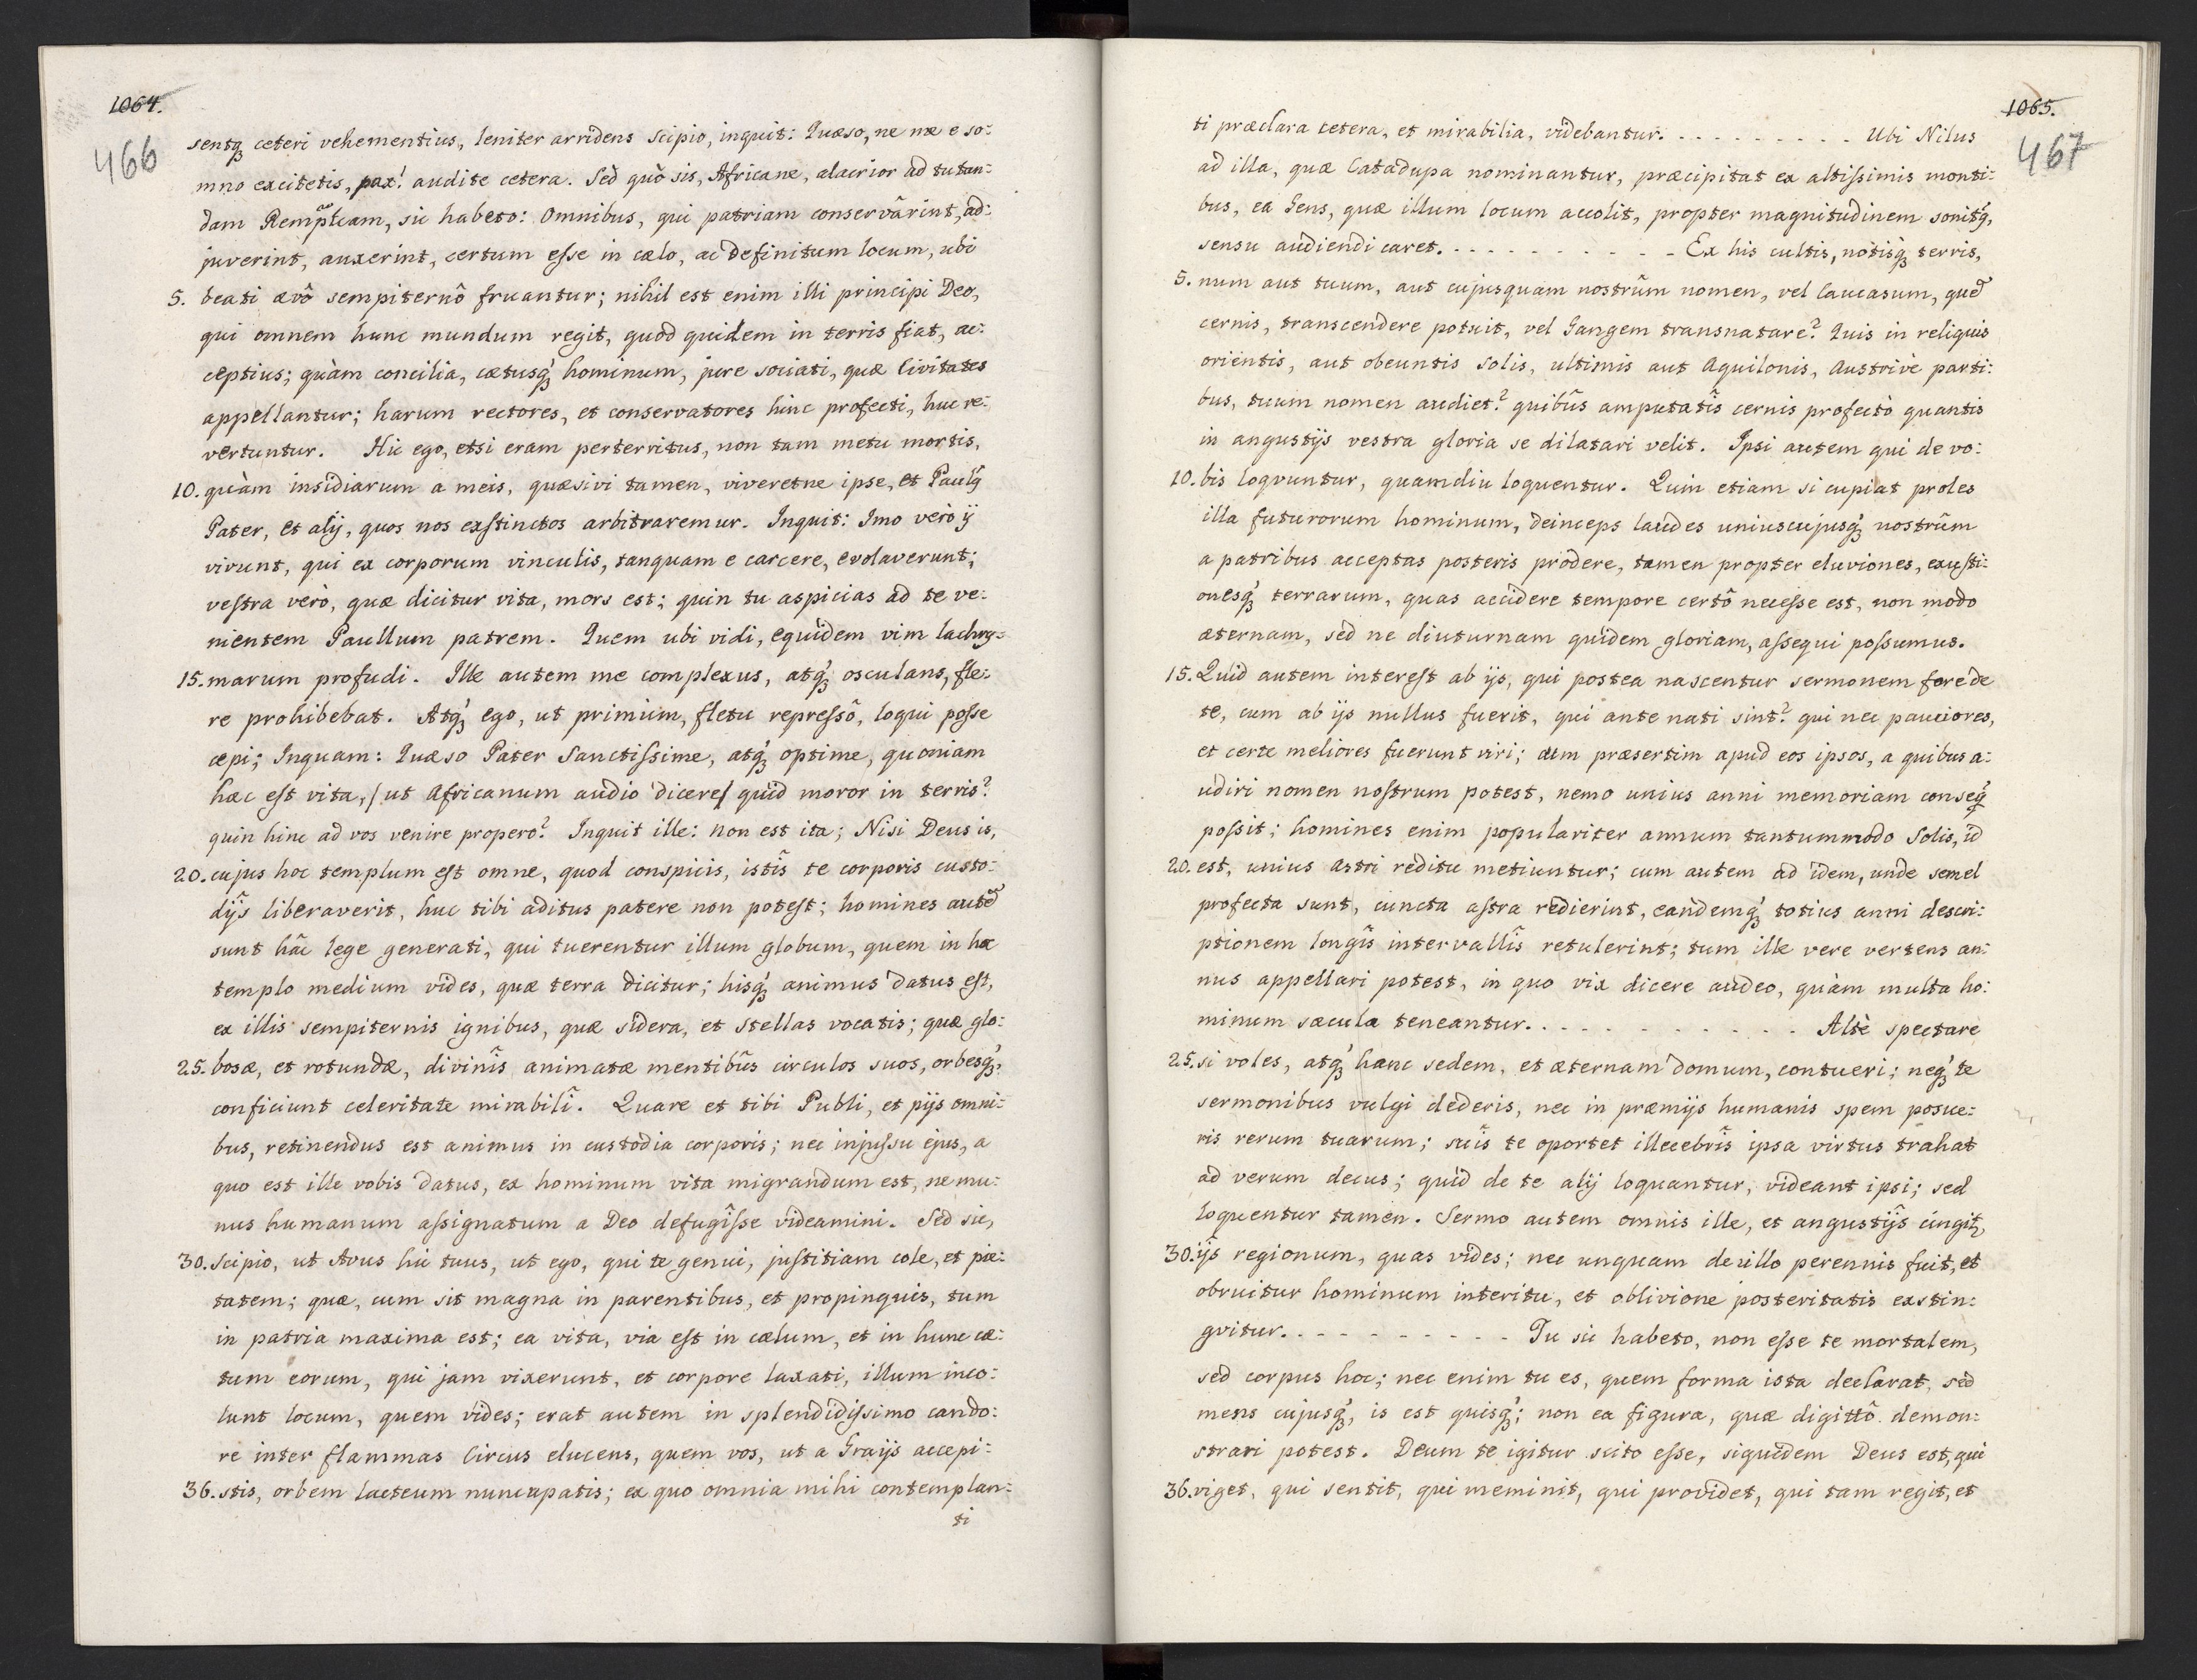 1064.
466
sentq́ꝫ ceteri vehementius, leniter arridens Scipio, inquit: Quæso, ne me e so:
mno excitetis, pax! audite cetera. Sed quò sis, Africane, alacrior ad tutan:
dam Rempl̃cam, sic habeto: Omnibus, qui patriam conservârint, ad:
juverint, auxerint, certum eſse in cælo, ac definitum locum, ubi
5. beati ævô sempiternô fruantur; nihil est enim illi principi Deo,
qui omnem hunc mundum regit, quod quidem in terris fiat, ac:
ceptius; quàm concilia, cætusq́ꝫ hominum, jure sociati, quæ Civitates
appellantur; harum rectores, et conservatores hinc profecti, huc re:
vertuntur. Hic ego, etsi eram perterritus, non tam metu mortis,
10. quàm insidiarum a meis, quæsivi tamen, viveretne ipse, et Paulꝰ
Pater, et alÿ, quos nos exſtinctos arbitraremur. Inquit: Imo verò ÿ
vivunt, qui ex corporum vinculis, tanquam e carcere, evolaverunt;
veſtra verò, quæ dicitur vita, mors est; quin tu aspicias ad te ve:
nientem Paullum patrem. Quem ubi vidi, equidem vim lachry:
15. marum profudi. Ille autem me complexus, atq́ꝫ osculans, fle:
re prohibebat. Atq́ꝫ ego, ut primùm, fletu repreſsô, loqui poſse
cæpi; Inquam: Quæso Pater Sanctiſsime, atq́ꝫ optime, quoniam
hæc eſt vita, / ut Africanum audio dicere / quid moror in terris?
quin hinc ad vos venire propero? Inquit ille: non est ita; Nisi Deus is,
20. cujus hoc templum eſt omne, quod conspicis, istîs te corporis custo:
dÿs liberaverit, huc tibi aditus patere non poteſt; homines autẽ
sunt hâc lege generati, qui tuerentur illum globum, quem in hoc
templo medium vides, quæ terra dicitur; hisq́ꝫ animus datus eſt,
ex illis sempiternis ignibus, quæ sidera, et stellas vocatis; quæ glo:
25. bosæ, et rotundæ, divinîs animatæ mentibûs circulos suos, orbesq́ꝫ
conficiunt celeritate mirabilî. Quare et tibi Publi, et pÿs omni:
bus, retinendus est animus in custodia corporis; nec injuſsu ejus, a
quo est ille vobis datus, ex hominum vita migrandum est, ne mu:
nus humanum aſsignatum a Deo defugîſse videamini. Sed sic,
30. Scipio, ut Avus hic tuus, ut ego, qui te genui, juſtitiam cole, et pie:
tatem; quæ, cum sit magna in parentibus, et propinquis, tum
in patria maxima est; ea vita, via eſt in cælum, et in hunc cæ:
tum eorum, qui jam vixerunt, et corpore laxati, illum inco:
lunt locum, quem vides; erat autem in splendidiſsimo cando:
re inter flammas Circus elucens, quem vos, ut a Graÿs accepi:
36. stis, orbem lacteum nuncupatis; ex quo omnia mihi contemplan:
ti
1065.
467
ti præclara cetera, et mirabilia, videbantur. . . . . . . . . . . Ubi Nilus
ad illa, quæ Catadupa nominantur, præcipitat ex altiſsimis monti:
bus, ea Gens, quæ illum locum accolit, propter magnitudinem sonitꝰ,
sensu audiendi caret. . . . . . . . . . . . Ex his cultis, notisq́ꝫ terris,
5. num aut tuum, aut cujusquam nostrûm nomen, vel Caucasum, quẽ
cernis, transcendere potuit, vel Gangem transnatare? Quis in reliquis
orientis, aut obeuntis Solis, ultimis aut Aquilonis, Austrive parti:
bus, tuum nomen audiet? quibûs amputatîs cernis profectò quantis
in angustÿs vestra gloria se dilatari velit. Ipsi autem qui de vo:
10. bis loqvuntur, quamdiu loquentur. Quin etiam si cupiat proles
illa futurorum hominum, deinceps laudes uniuscujusq́ꝫ nostrûm
a patribus acceptas posteris prodere, tamen propter eluviones, exuſti:
onesq́ꝫ terrarum, quas accidere tempore certô neceſse est, non modo
æternam, sed ne diuturnam quidem gloriam, aſsequi poſsumus.
15. Quid autem intereſt ab ÿs, qui postea nascentur sermonem fore de
te, cum ab ÿs nullus fuerit, qui ante nati sint? qui nec pauciores,
et certe meliores fuerunt viri; cum præsertim apud eos ipsos, a quibus a:
udiri nomen noſtrum potest, nemo unius anni memoriam conseq́
poſsit; homines enim populariter annum tantummodo Solis, id
20. est, unius Astri reditu metiuntur; cum autem ad idem, unde semel
profecta sunt, cuncta aſtra redierint, eandemq́ꝫ totius anni descri:
ptionem longîs intervallîs retulerint; tum ille vere vertens an:
nus appellari potest, in quo vix dicere audeo, quàm multa ho:
minum sæcula teneantur. . . . . . . . . . . . . Altè spectare
25. si voles, atq́ꝫ hanc sedem, et æternam domum, contueri; neq́ꝫ te
sermonibus vulgi dederis, nec in præmÿs humanis spem posue:
ris rerum tuarum; suîs te oportet illecebrîs ipsa virtus trahat
ad verum decus; quid de te alÿ loquantur, videant ipsi; sed
loquentur tamen. Sermo autem omnis ille, et angustÿs cingitꝛ
30. ÿs regionum, quas vides; nec unquam de ullo perennis fuit, et
obruitur hominum interitu, et oblivione posteritatis exstin:
gvitur. . . . . . . . . . . Tu sic habeto, non eſse te mortalem,
sed corpus hoc; nec enim tu es, quem forma ista declarat, sed
mens cujusq́ꝫ, is est quisq́ꝫ; non ea figura, quæ digittô demon:
strari potest. Deum te igitur scito eſse, siquidem Deus est, qui
36. viget, qui sentit, qui meminit, qui providet, qui tam regit, et